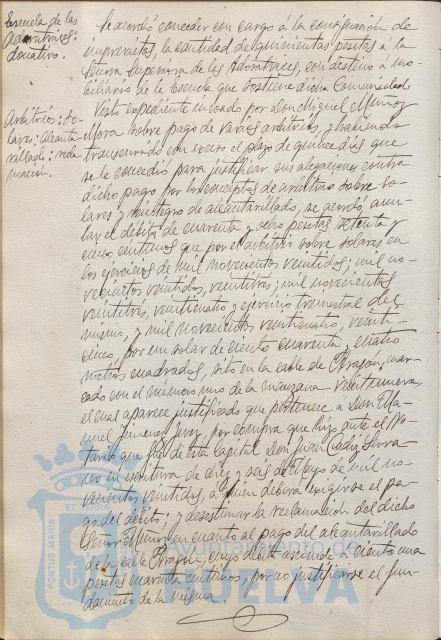 Escuela de las
Adoratrices:
donativo.
Se acordó conceder con cargo á la consignación de
imprevistos, la cantidad de quinientas pesetas á la
Señora Superiora de las Adoratrices, con destino á mo-
biliario de la Escuela que sostiene dicha Comunidad
Arbitrios: So-
lares: Alcanta-
rillado: recla-
mación.
Visto expediente incoado por don Miguel Muñoz
Mora sobre pago de varios arbitrios, y habiendo
transcurrido con exceso el plazo de quince días que
se le concedió para justificar sus alegaciones contra
dicho pago por los conceptos de arbitrio sobre so-
lares y reintegro de alcantarillado, se acordó, anu-
lar el débito de cuarenta y ocho pesetas setenta y
cinco céntimos que por el arbitrio sobre solares en
los ejercicios de mil novecientos veintidos; mil no-
vecientos veintidos, veintitres; mil novecientos
veintitrés, veinticuatro y ejercicio trimestral del
mismo, y mil novecientos veinticuatro, veinti-
cinco, por un solar de ciento cuarenta y cuatro
metros cuadrados, sito en la calle de Aragón, mar-
cado con el número uno de la manzana veintinueve,
el cual aparece justificado que pertenece á Don Ma-
nuel Jimenez Jerez por compra que hizo ante el No-
tario que fué de esta Capital Don Juan Cádiz Serra-
no en escritura de diez y seis de Mayo de mil no-
vecientos veintidos, a quien deberá exigirse el pa-
go del débito; y desestimar la reclamación del dicho
Señor Muñoz en cuanto al pago del alcantarillado
de la calle Aragón, cuyo débito asciende á ciento una
pesetas cuarenta céntimos, por no justificarse el fun-
damento de la misma.
PORTUS MARIS
ET TERRÆ
Ayuntamiento de
HUELVA